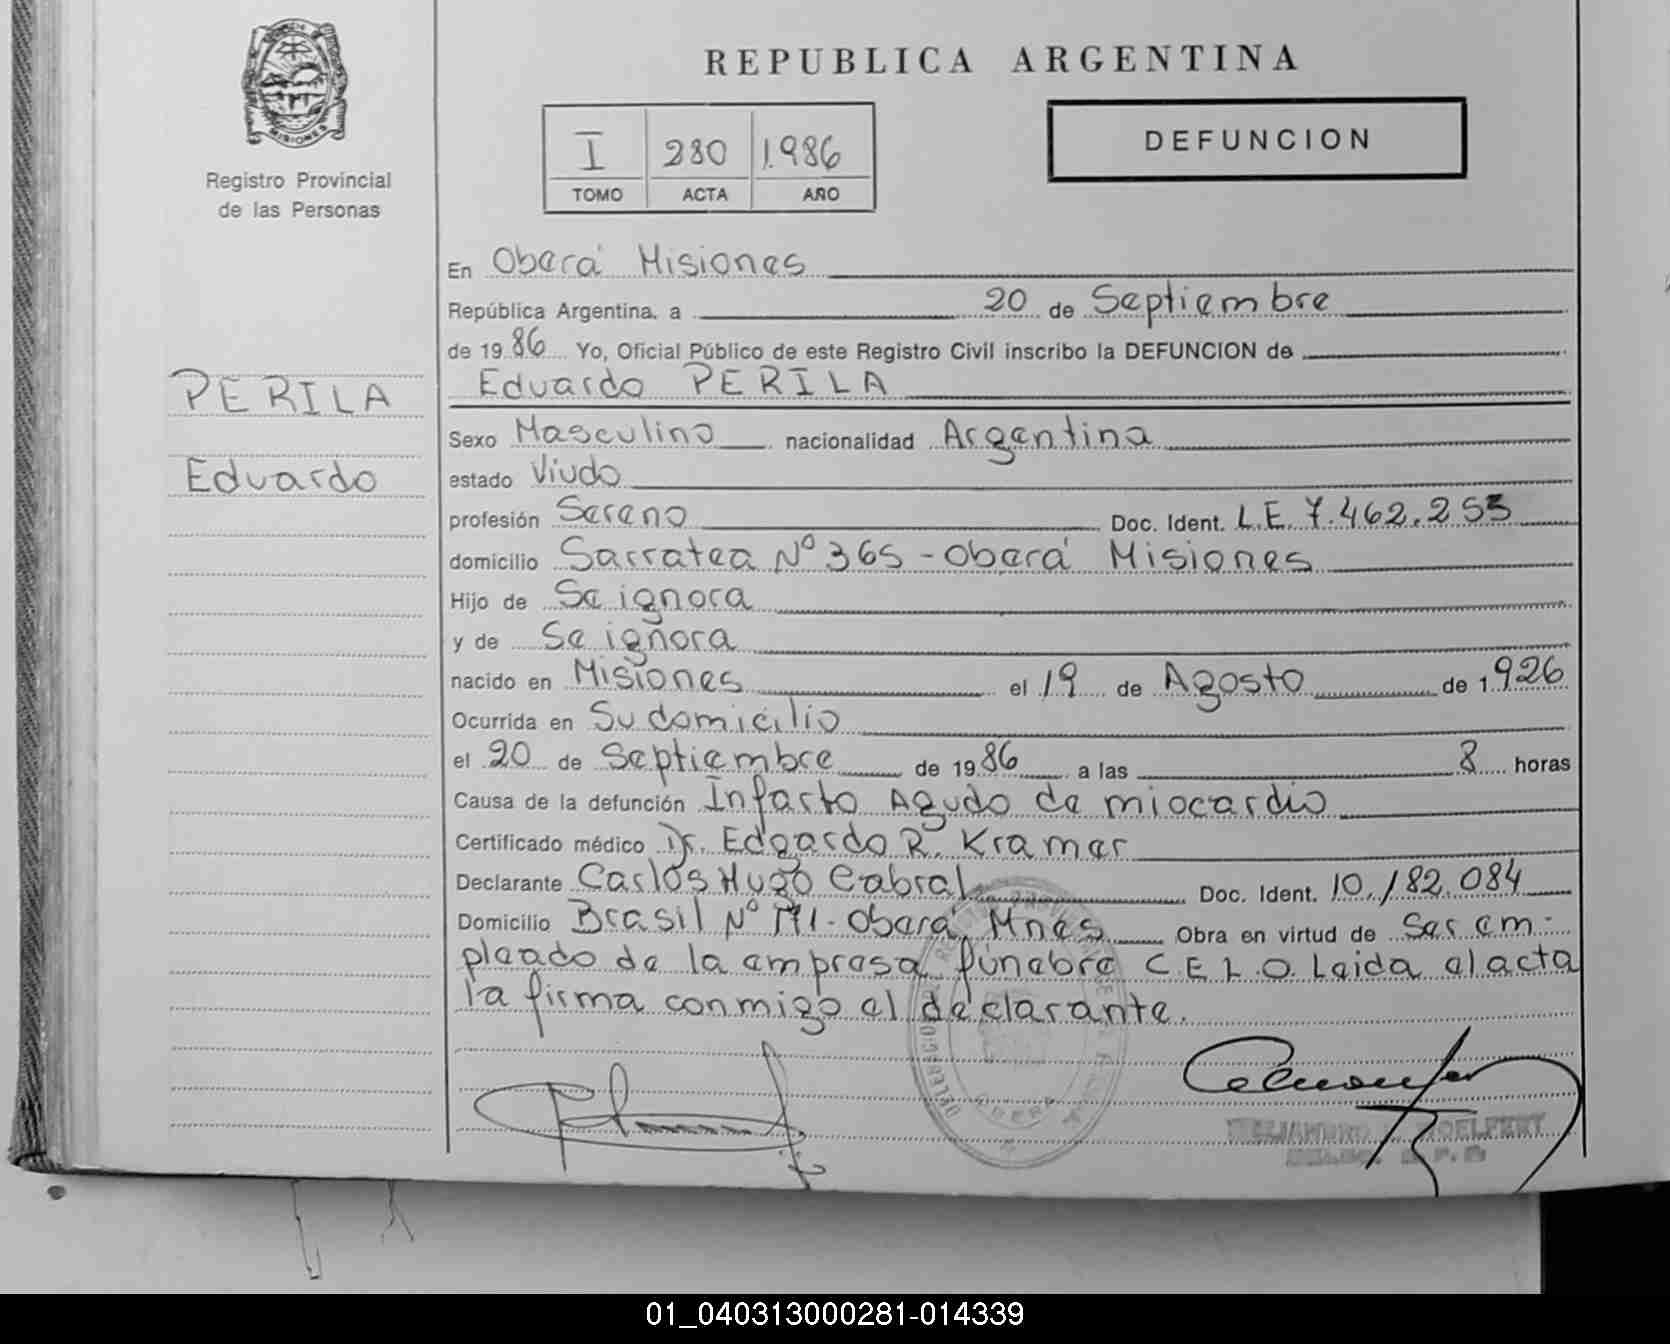 REPUBLICA ARGENTINA
MISIONES
Registro Provincial
de las Personas
I 280 1.986
TOMO ACTA AÑO
DEFUNCION
PERILA
Eduardo
En Oberá Misiones
República Argentina, a 20 de Septiembre
de 1986 Yo, Oficial Público de este Registro Civil inscribo la DEFUNCION de
Eduardo PERILA
Sexo Masculino nacionalidad Argentina
estado Viudo
profesión Sereno Doc. Ident. L.E. 7.462.253
domicilio Sarratea Nº 365 - Oberá Misiones
Hijo de Se ignora
y de Se ignora
nacido en Misiones el 19 de Agosto de 1.926
Ocurrida en Su domicilio
el 20 de Septiembre de 1986 a las 8 horas
Causa de la defunción Infarto Agudo de miocardio
Certificado médico Dr. Edgardo R. Kramer
Declarante Carlos Hugo Cabral Doc. Ident. 10.182.084
Domicilio Brasil Nº - Oberá, Mnes Obra en virtud de Ser em-
pleado de la empresa fúnebre C.E.L.O. Leida el acta
la firma conmigo el declarante.
OBERA
01_040313000281-014339